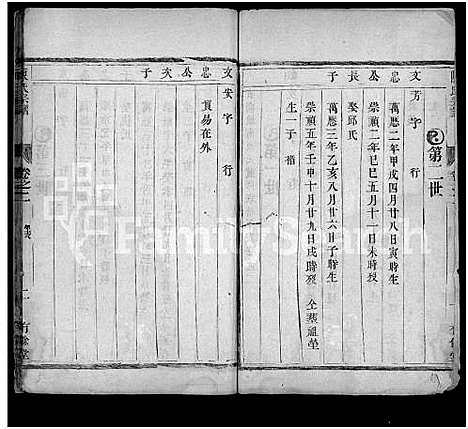 第二世
文芳字 行
忠公長子
萬曆二年甲戌四月廿八日寅時生
崇禎二年己巳五月十一日未時歿
娶邱氏
萬曆三年乙亥八月廿六日子時生
崇禎五年壬申十月廿九日戌時歿 仝葬祖塋
生一子 楷
文安字 行
忠公次子
貿易在外
陳氏宗譜
卷之二
二
有餘堂
FamilySearch